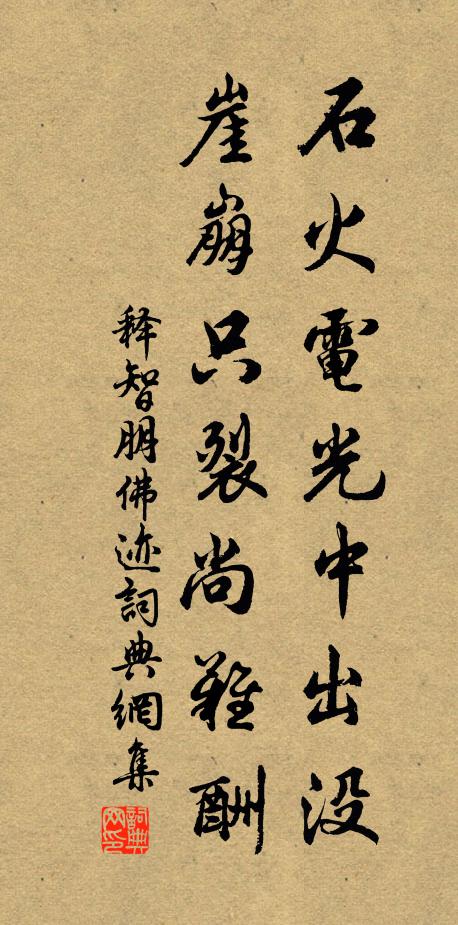 石火電光中出没
崖崩只裂尚難酬
释智朋佛迹詞典網集
詞典网印